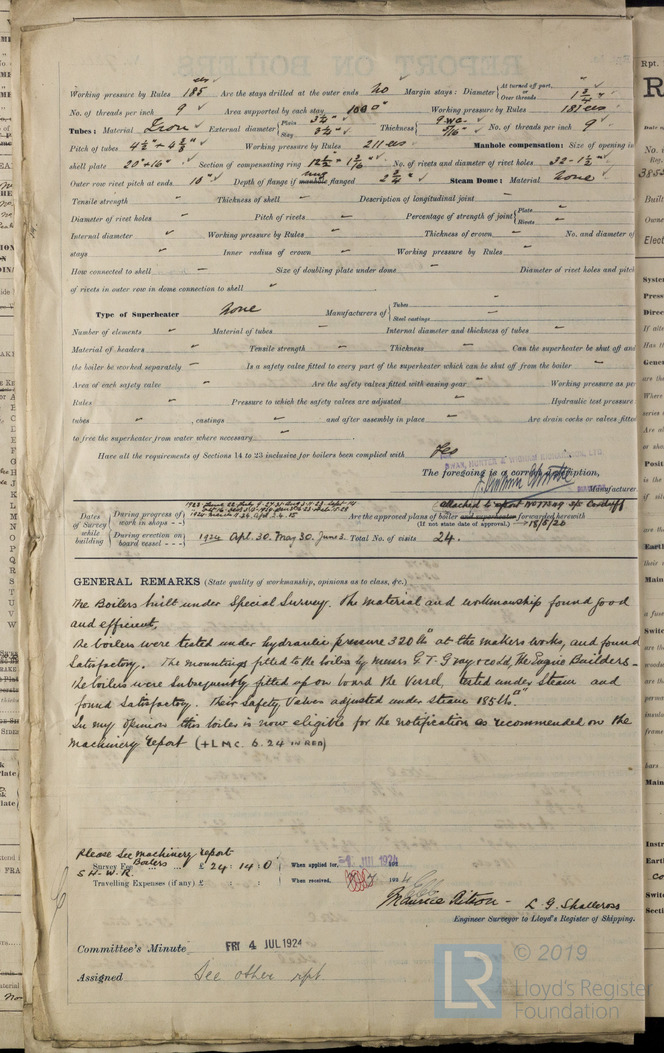 Working pressure by Rules 185 lbs ✓ Are the stays drilled at the outer ends No Margin stays: Diameter { At turned off part, or Over threads 1 3/4" ✓
No. of threads per inch 9 ✓ Area supported by each stay 100 □" Working Pressure by Rules 181 lbs
Tubes: Material Iron ✓ External diameter { Plain 3 1/2" ✓ Stay 3 1/2" ✓ Thickness { 9 WG ✓ 5/16" ✓ No. of threads per inch 9 ✓
Pitch of tubes Working Pressure by Rules 211 lbs Manhole compensation: Size of opening in
shell plate 20" × 16" ✓ Section of compensating ring No. of rivets and diameter of rivet holes 32 - 1 1/2" ✓
Outer row rivet pitch at ends 10" ✓ Depth of flange if manhole flanged 2 3/4" ✓ Steam Dome: Material None ✓
Tensile strength ~ Thickness of shell ~ Description of longitudinal joint ~
Diameter of rivet holes ~ Pitch of rivets ~ Percentage of strength of joint { Plate ~ Rivets ~
Internal diameter ~ Working pressure by Rules ~ Thickness of crown ~ No. and diameter of
stays ~ Inner radius of crown ~ Working pressure by Rules ~
How connected to shell ~ Size of doubling plate under dome ~ Diameter of rivet holes and pitch
of rivets in outer row in dome connection to shell ~
Type of Superheater None Manufacturers of { Tubes ~ Steel castings ~
Number of elements ~ Material of tubes ~ Internal diameter and thickness of tubes ~
Material of headers ~ Tensile strength ~ Thickness ~ Can the superheater be shut off and
the boiler be worked separately ~ Is a safety valve fitted to every part of the superheater which can be shut off from the boiler ~
Area of each safety valve ~ Are the safety valves fitted with easing gear ~ Working pressure as per
Rules ~ Pressure to which the safety valves are adjusted ~ Hydraulic test pressure
tubes ~ , castings ~ and after assembly in place ~ Are drain cocks or valves fitted
to free the superheater from water where necessary ~
Have all the requirements of Sections 14 to 23 inclusive for boilers been complied with Yes
SWAN, HUNTER & WIGHAM RICHARDSON, LTD.
The foregoing is a correct description,
Manufacturer.
Dates of Survey while building { During progress of work in shops - - } Are the approved plans of boiler and superheater forwarded herewith 18/5/20
(If not state date of approval.)
During erection on board vessel - - - 1924 Apl. 30. May 30. June 3. Total No. of visits 24.
GENERAL REMARKS (State quality of workmanship, opinions as to class, &c.)
The Boilers built under Special Survey. The material and workmanship found good
and efficient.
The boilers were tested under hydraulic pressure 320 lbs □" at the makers works, and found
satisfactory. The mountings fitted to the boilers by Messrs G. T. Gray & Co Ld, The Engine Builders -
The boilers were subsequently fitted up on board the Vessel, tested under steam and
found satisfactory. Their Safety Valves adjusted under steam 185 lbs □".
In my opinion this boiler is now eligible for the notification as recommended on the
machinery report (+ LMC 6.24 IN RED)
Please see machinery report
Survey Fee Boilers £ 24 : 14 : 0 When applied for, JUL 1924
S.H.W.R.
Travelling Expenses (if any) £ : : When received, 192
Maurice Pitson - L. G. Shallcross
Engineer Surveyor to Lloyd's Register of Shipping.
Committee's Minute FRI 4 JUL 1924
Assigned See other rpt.
© 2019
LR Lloyd's Register
Foundation